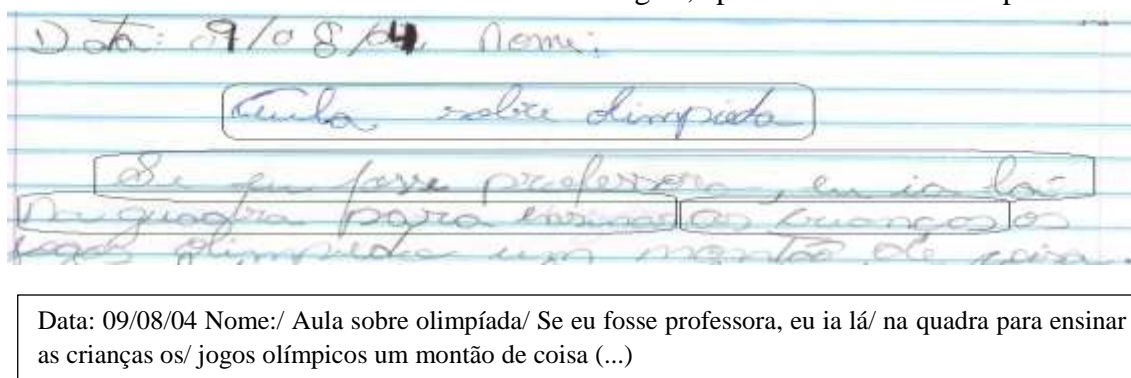 Data: 09/08/04 Nome:
Aula sobre olimpieda
Se eu fosse professora, eu ia lá
na quadra para ensinar as crianças os
jogos olimpieda um montão de coisa
Data: 09/08/04 Nome:/ Aula sobre olimpíada/ Se eu fosse professora, eu ia lá/ na quadra para ensinar
as crianças os/ jogos olímpicos um montão de coisa (...)